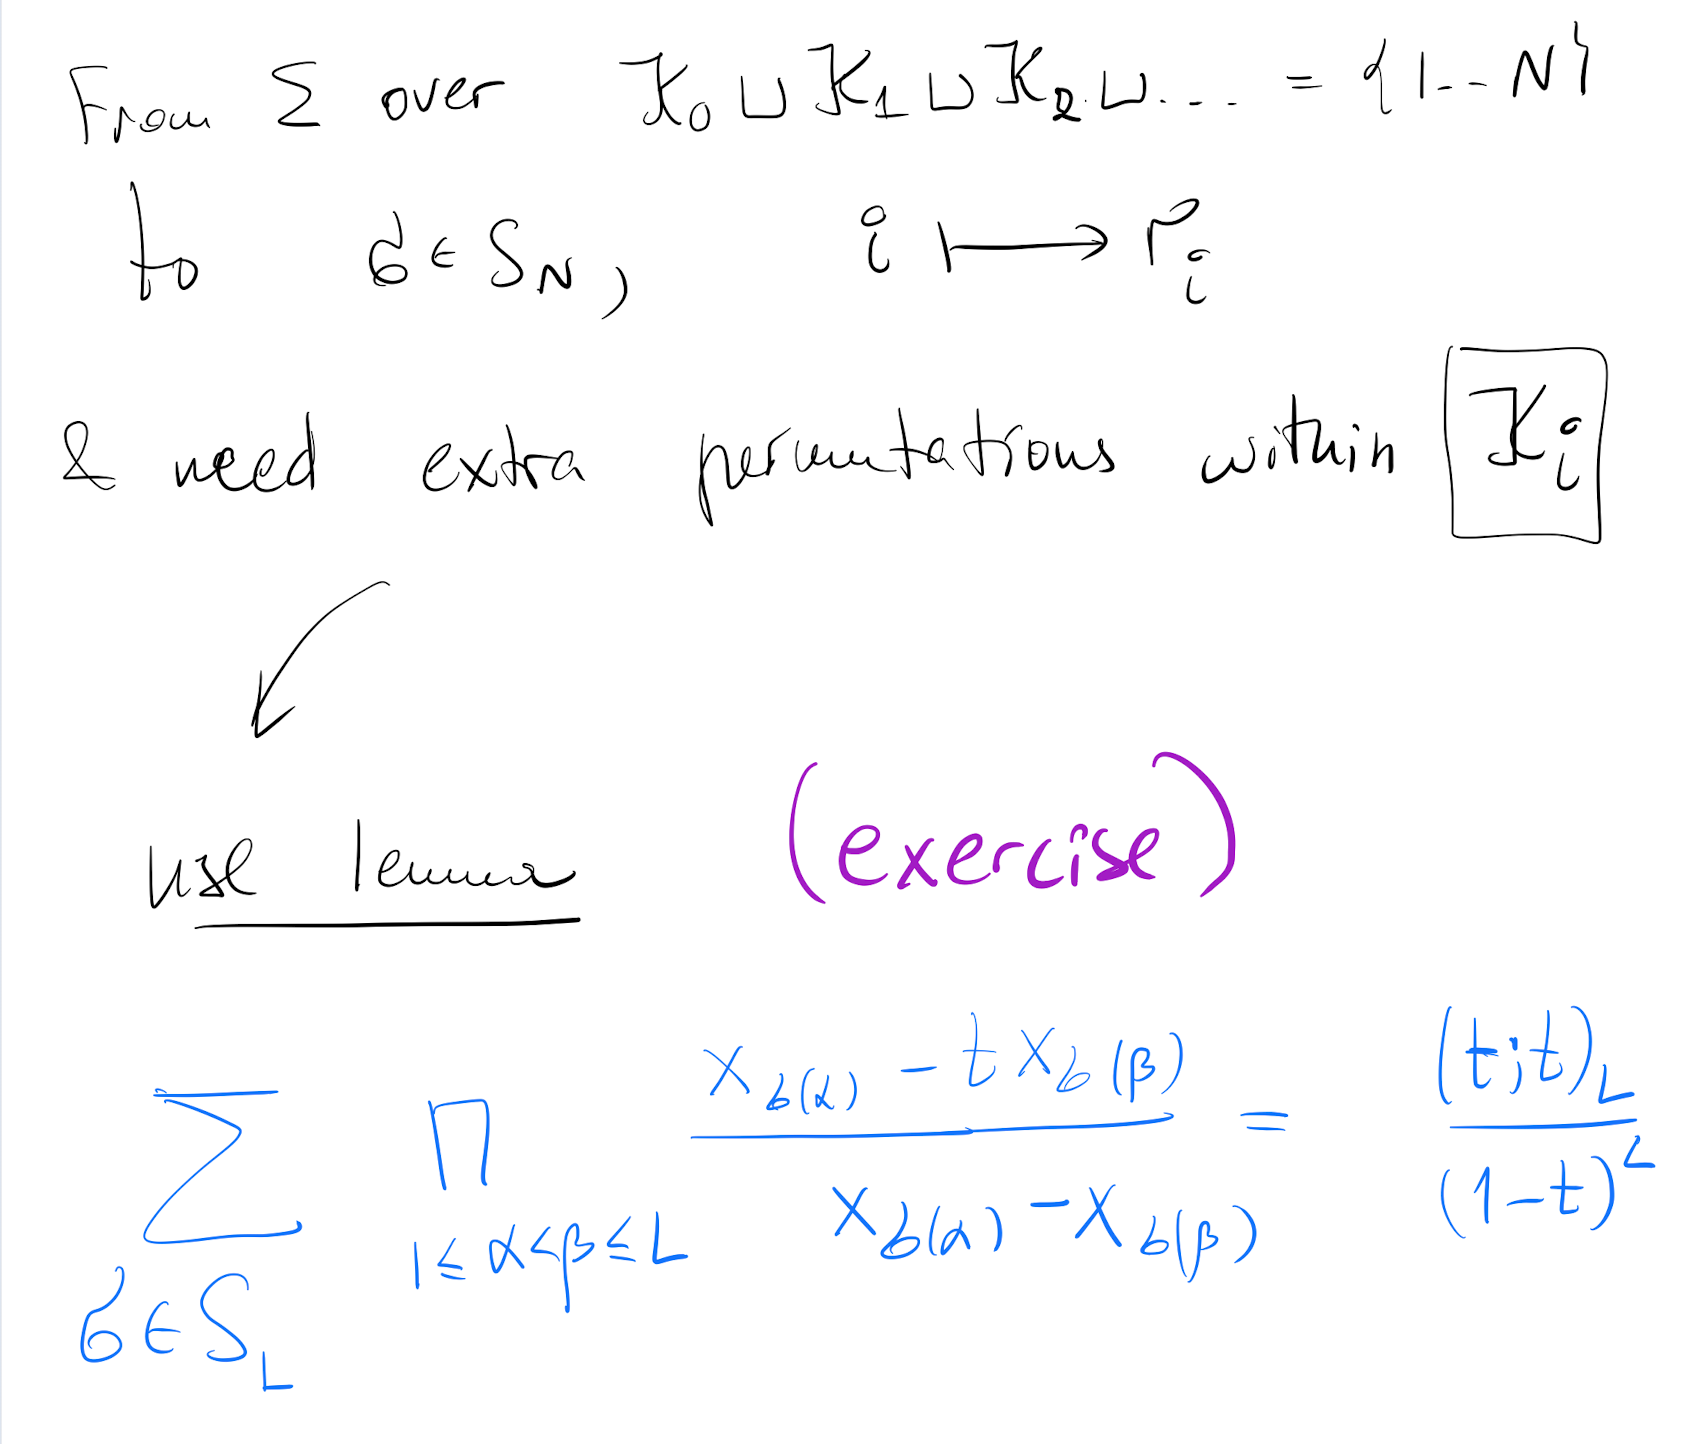 From Σ over 𝒦₀ ⊔ 𝒦₁ ⊔ 𝒦₂ ⊔ ... = {1..N}
to σ ∈ S_N, i ↦ r_i
& need extra permutations within 𝒦_i
use lemma (exercise)
∑_{σ∈S_L} ∏_{1≤α<β≤L} (x_{σ(α)} − t x_{σ(β)}) / (x_{σ(α)} − x_{σ(β)}) = (t;t)_L / (1−t)^L